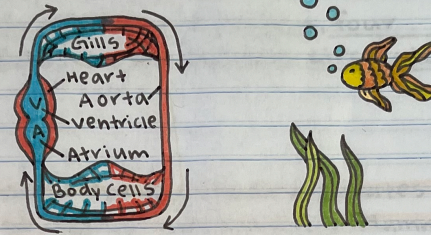 Gills
Heart
Aorta
V
Ventricle
A
Atrium
Body Cells